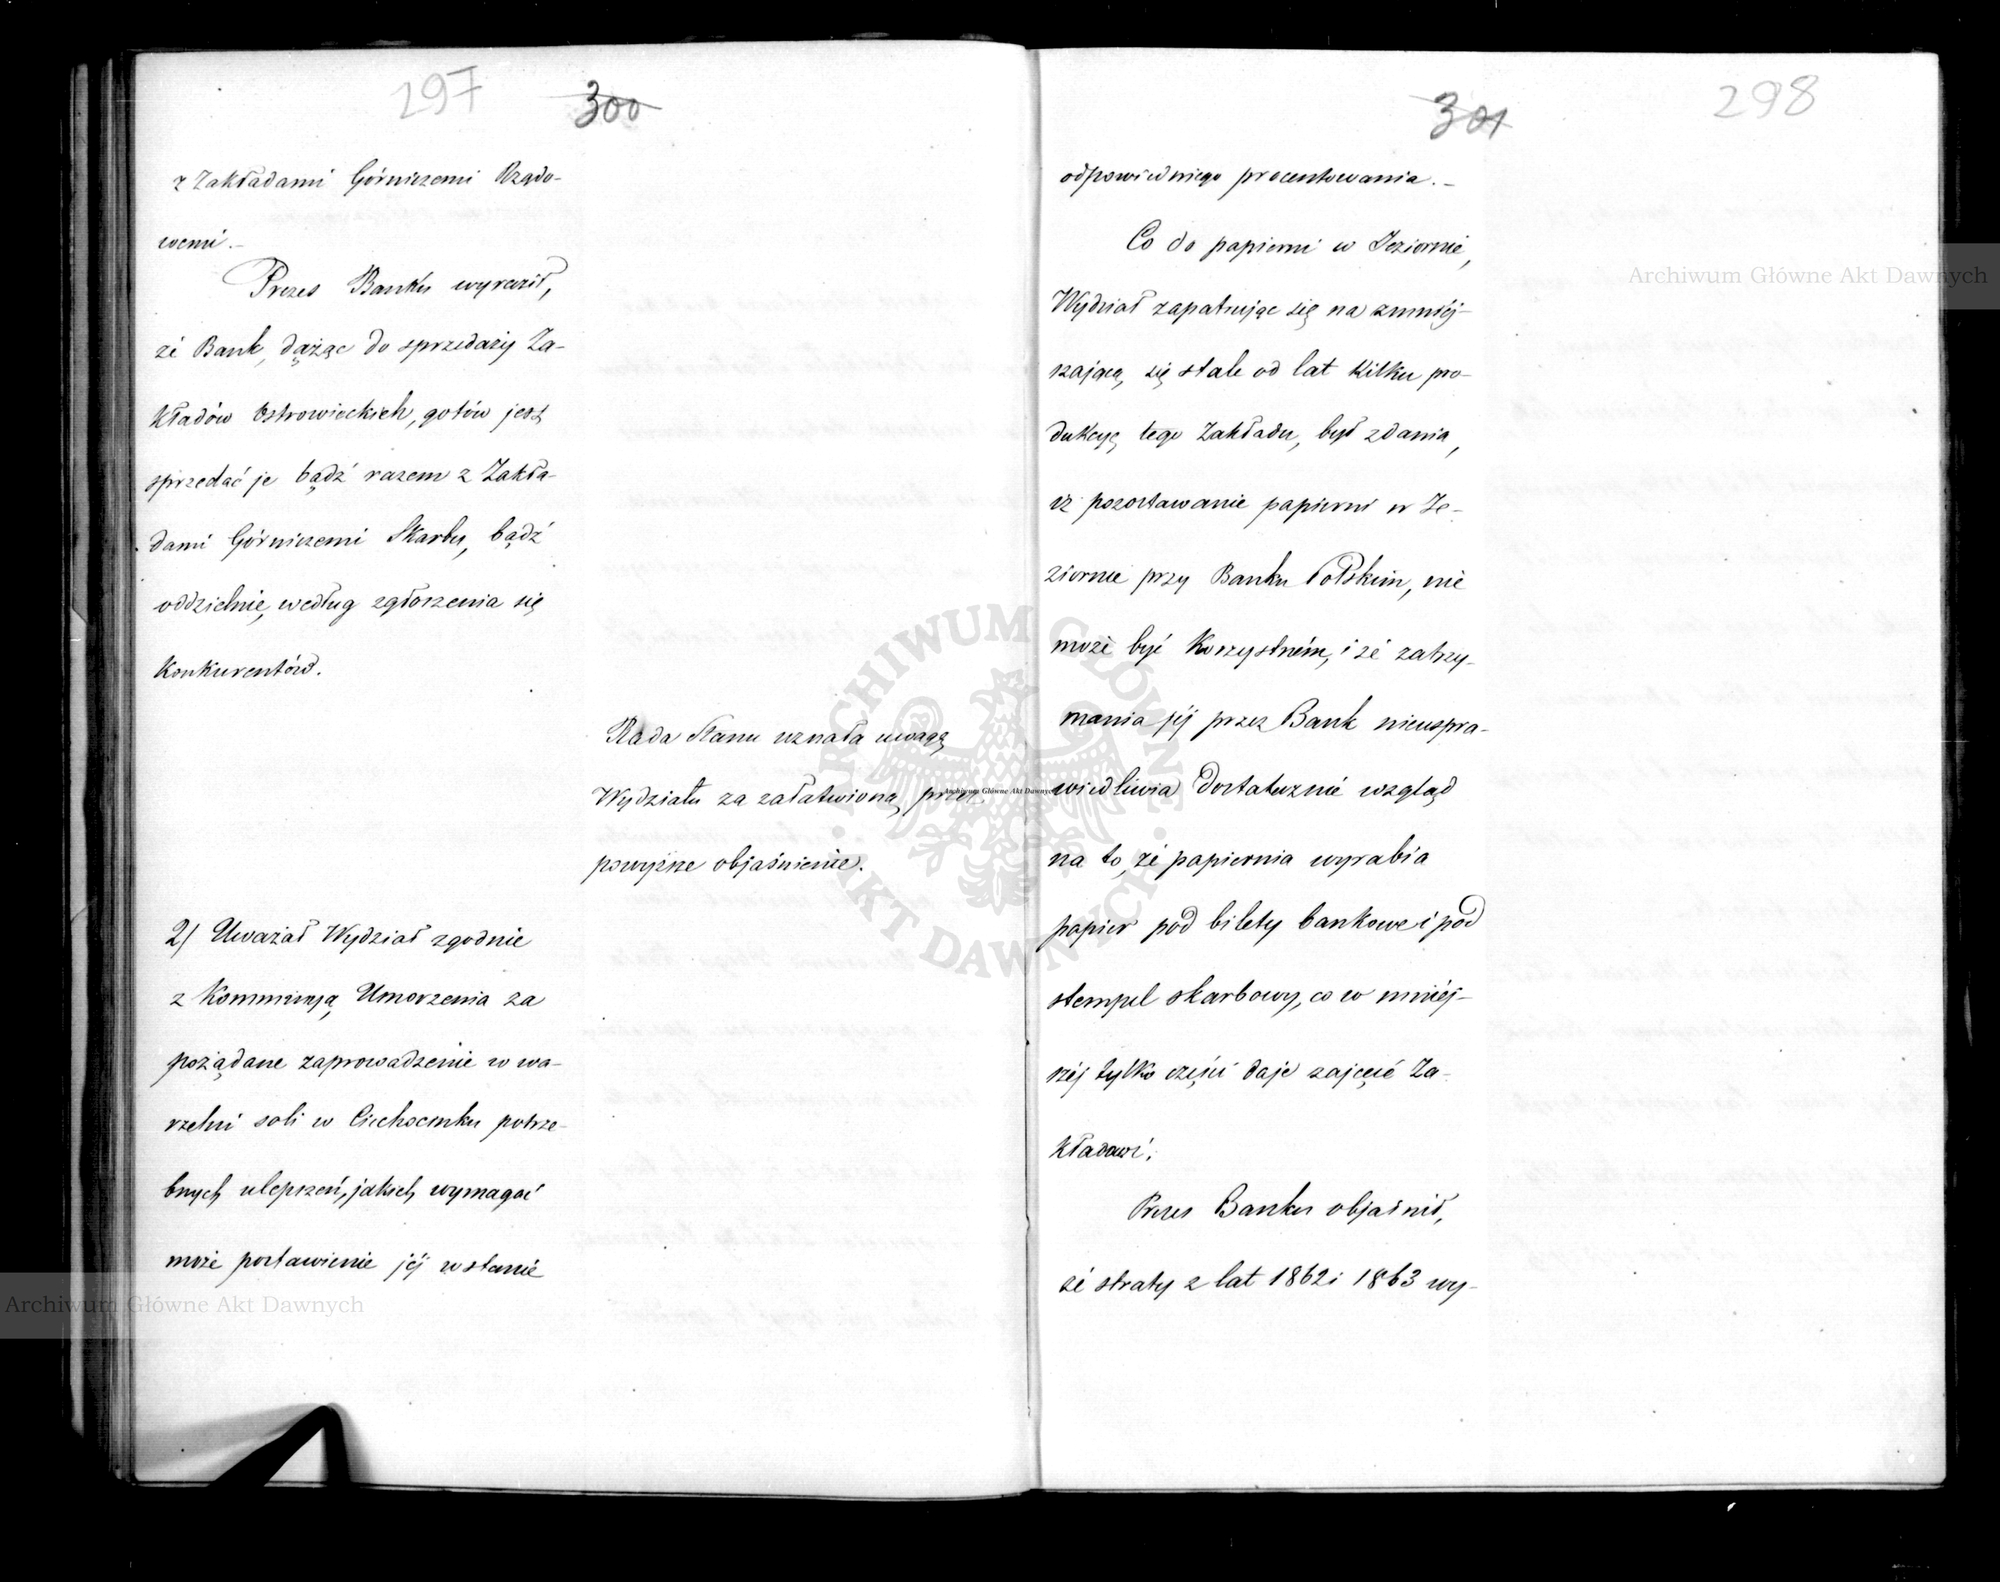 297
300
z Zakładami Górniczemi Rządo-
wemi.-
Prezes Banku wyraził,
że Bank, dążąc do sprzedaży Za-
kładów Ostrowieckich, gotów jest
sprzedać je bądź razem z Zakła-
dami Górniczemi Skarbu, bądź
oddzielnie, według zgłoszenia się
Konkurentów.
Rada Stanu uznała uwagę
Wydziału za załatwioną przez
powyższe objaśnienie.
2/ Uważał Wydział zgodnie
z Kommissyą Umorzenia za
pożądane zaprowadzenie w wa-
rzelni soli w Ciechocinku potrze-
bnych ulepszeń, jakich wymagać
może postawienie jéj w stanie
301
298
odpowiedniego procentowania.-
Co do papierni w Jeziornie,
Wydział zapatrując się na zmniéj-
szającą się stale od lat kilku pro-
dukcyę tego Zakładu, był zdania,
iż pozostawanie papierni w Je-
ziornie przy Banku Polskim, nie
może być korzystném, i że zatrzy-
mania jéj przez Bank nieuspra-
wiedliwia dostatecznie wzgląd
na to, że papiernia wyrabia
papier pod bilety bankowe i pod
stempel skarbowy, co w mniéj-
széj tylko części daje zajęcie Za-
kładowi.
Prezes Banku objaśnił,
że straty z lat 1862 i 1863 wy-
Archiwum Główne Akt Dawnych
ARCHIWUM GŁÓWNE AKT DAWNYCH
Archiwum Główne Akt Dawnych
Archiwum Główne Akt Dawnych